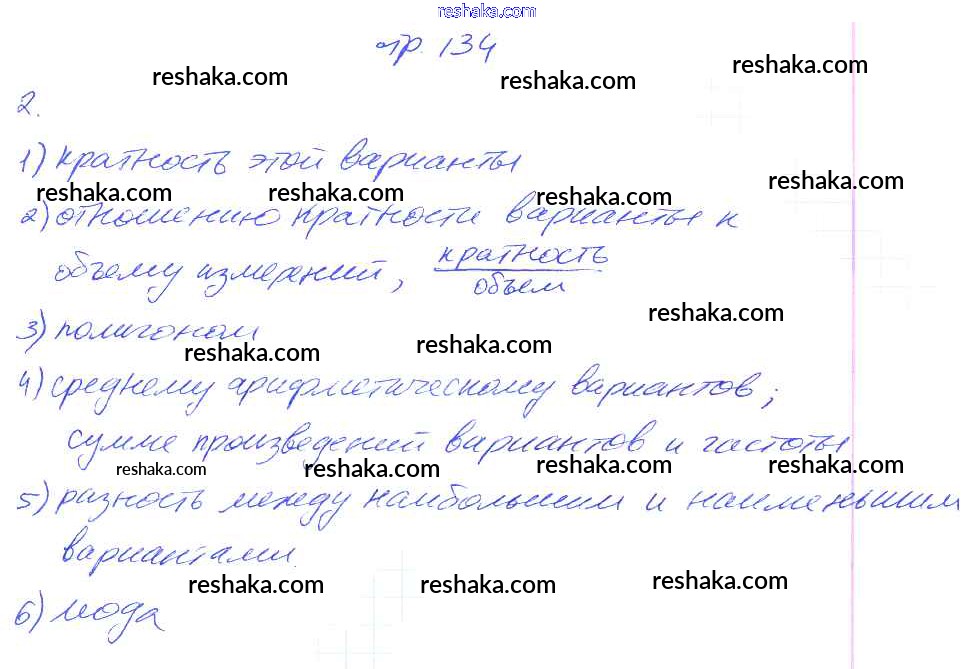 reshaka.com
стр. 134
reshaka.com reshaka.com reshaka.com
2.
1) кратность этой варианты
reshaka.com reshaka.com reshaka.com reshaka.com
2) отношению кратности варианты к
объему измерений, кратность
объем
reshaka.com
3) полигоном
reshaka.com reshaka.com
4) среднему арифметическому вариантов;
сумме произведений вариантов и частоты
reshaka.com reshaka.com reshaka.com reshaka.com
5) разность между наибольшим и наименьшим
вариантами.
reshaka.com reshaka.com reshaka.com
6) мода